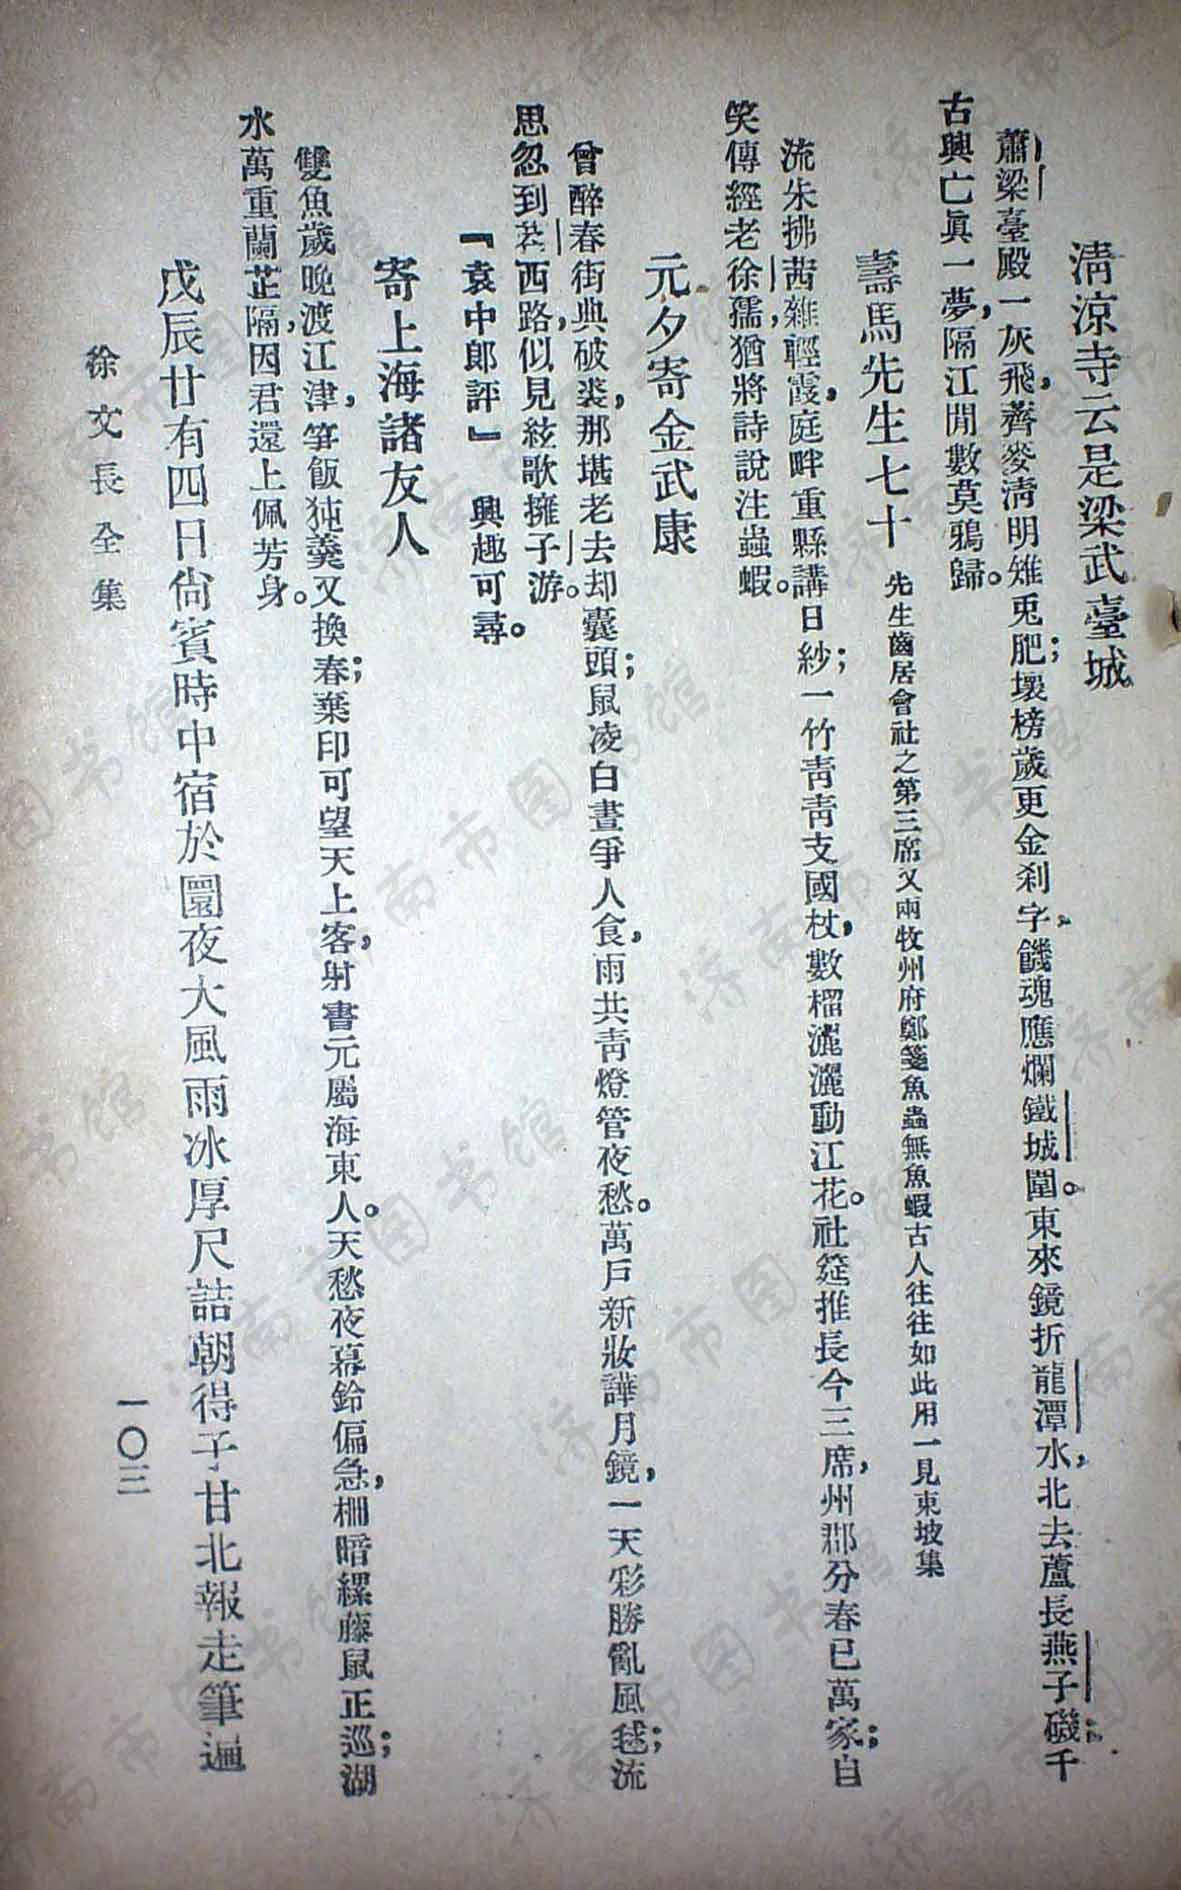 清涼寺云是梁武臺城
蕭梁臺殿一灰飛，薺麥淸明雉兎肥；壞榜歲更金刹字，饑魂應爛鐵城圍。東來鏡折龍潭水，北去蘆長燕子磯；千
古興亡眞一夢，隔江閒數莫鴉歸。
壽馬先生七十 先生齒居會社之第三席又兩牧州府鄭箋魚蟲無魚蝦古人往往如此用一見東坡集
流朱拂茜雜輕霞，庭畔重縣講日紗；一竹靑靑支國杖，數榴灑灑動江花。社筵推長今三席，州郡分春已萬家；自
笑傳經老徐孺，猶將詩說注蟲蝦。
元夕寄金武康
曾醉春街典破裘，那堪老去却囊頭；鼠凌白晝爭人食，雨共靑燈管夜愁。萬戶新妝譁月鏡，一天彩勝亂風毬；流
思忽到苕西路，似見絃歌擁子游。
『袁中郎評』 興趣可尋。
寄上海諸友人
雙魚歲晚渡江津，笋飯㹠羹又換春；葉印可望天上客，射書元屬海東人。天愁夜幕鈴偏急，柵暗縲藤鼠正巡；湖
水萬重蘭芷隔，因君還上佩芳身。
戊辰廿有四日尙賓時中宿於圜夜大風雨冰厚尺詰朝得子甘北報走筆遍
徐文長全集
一〇三
济南市图书馆